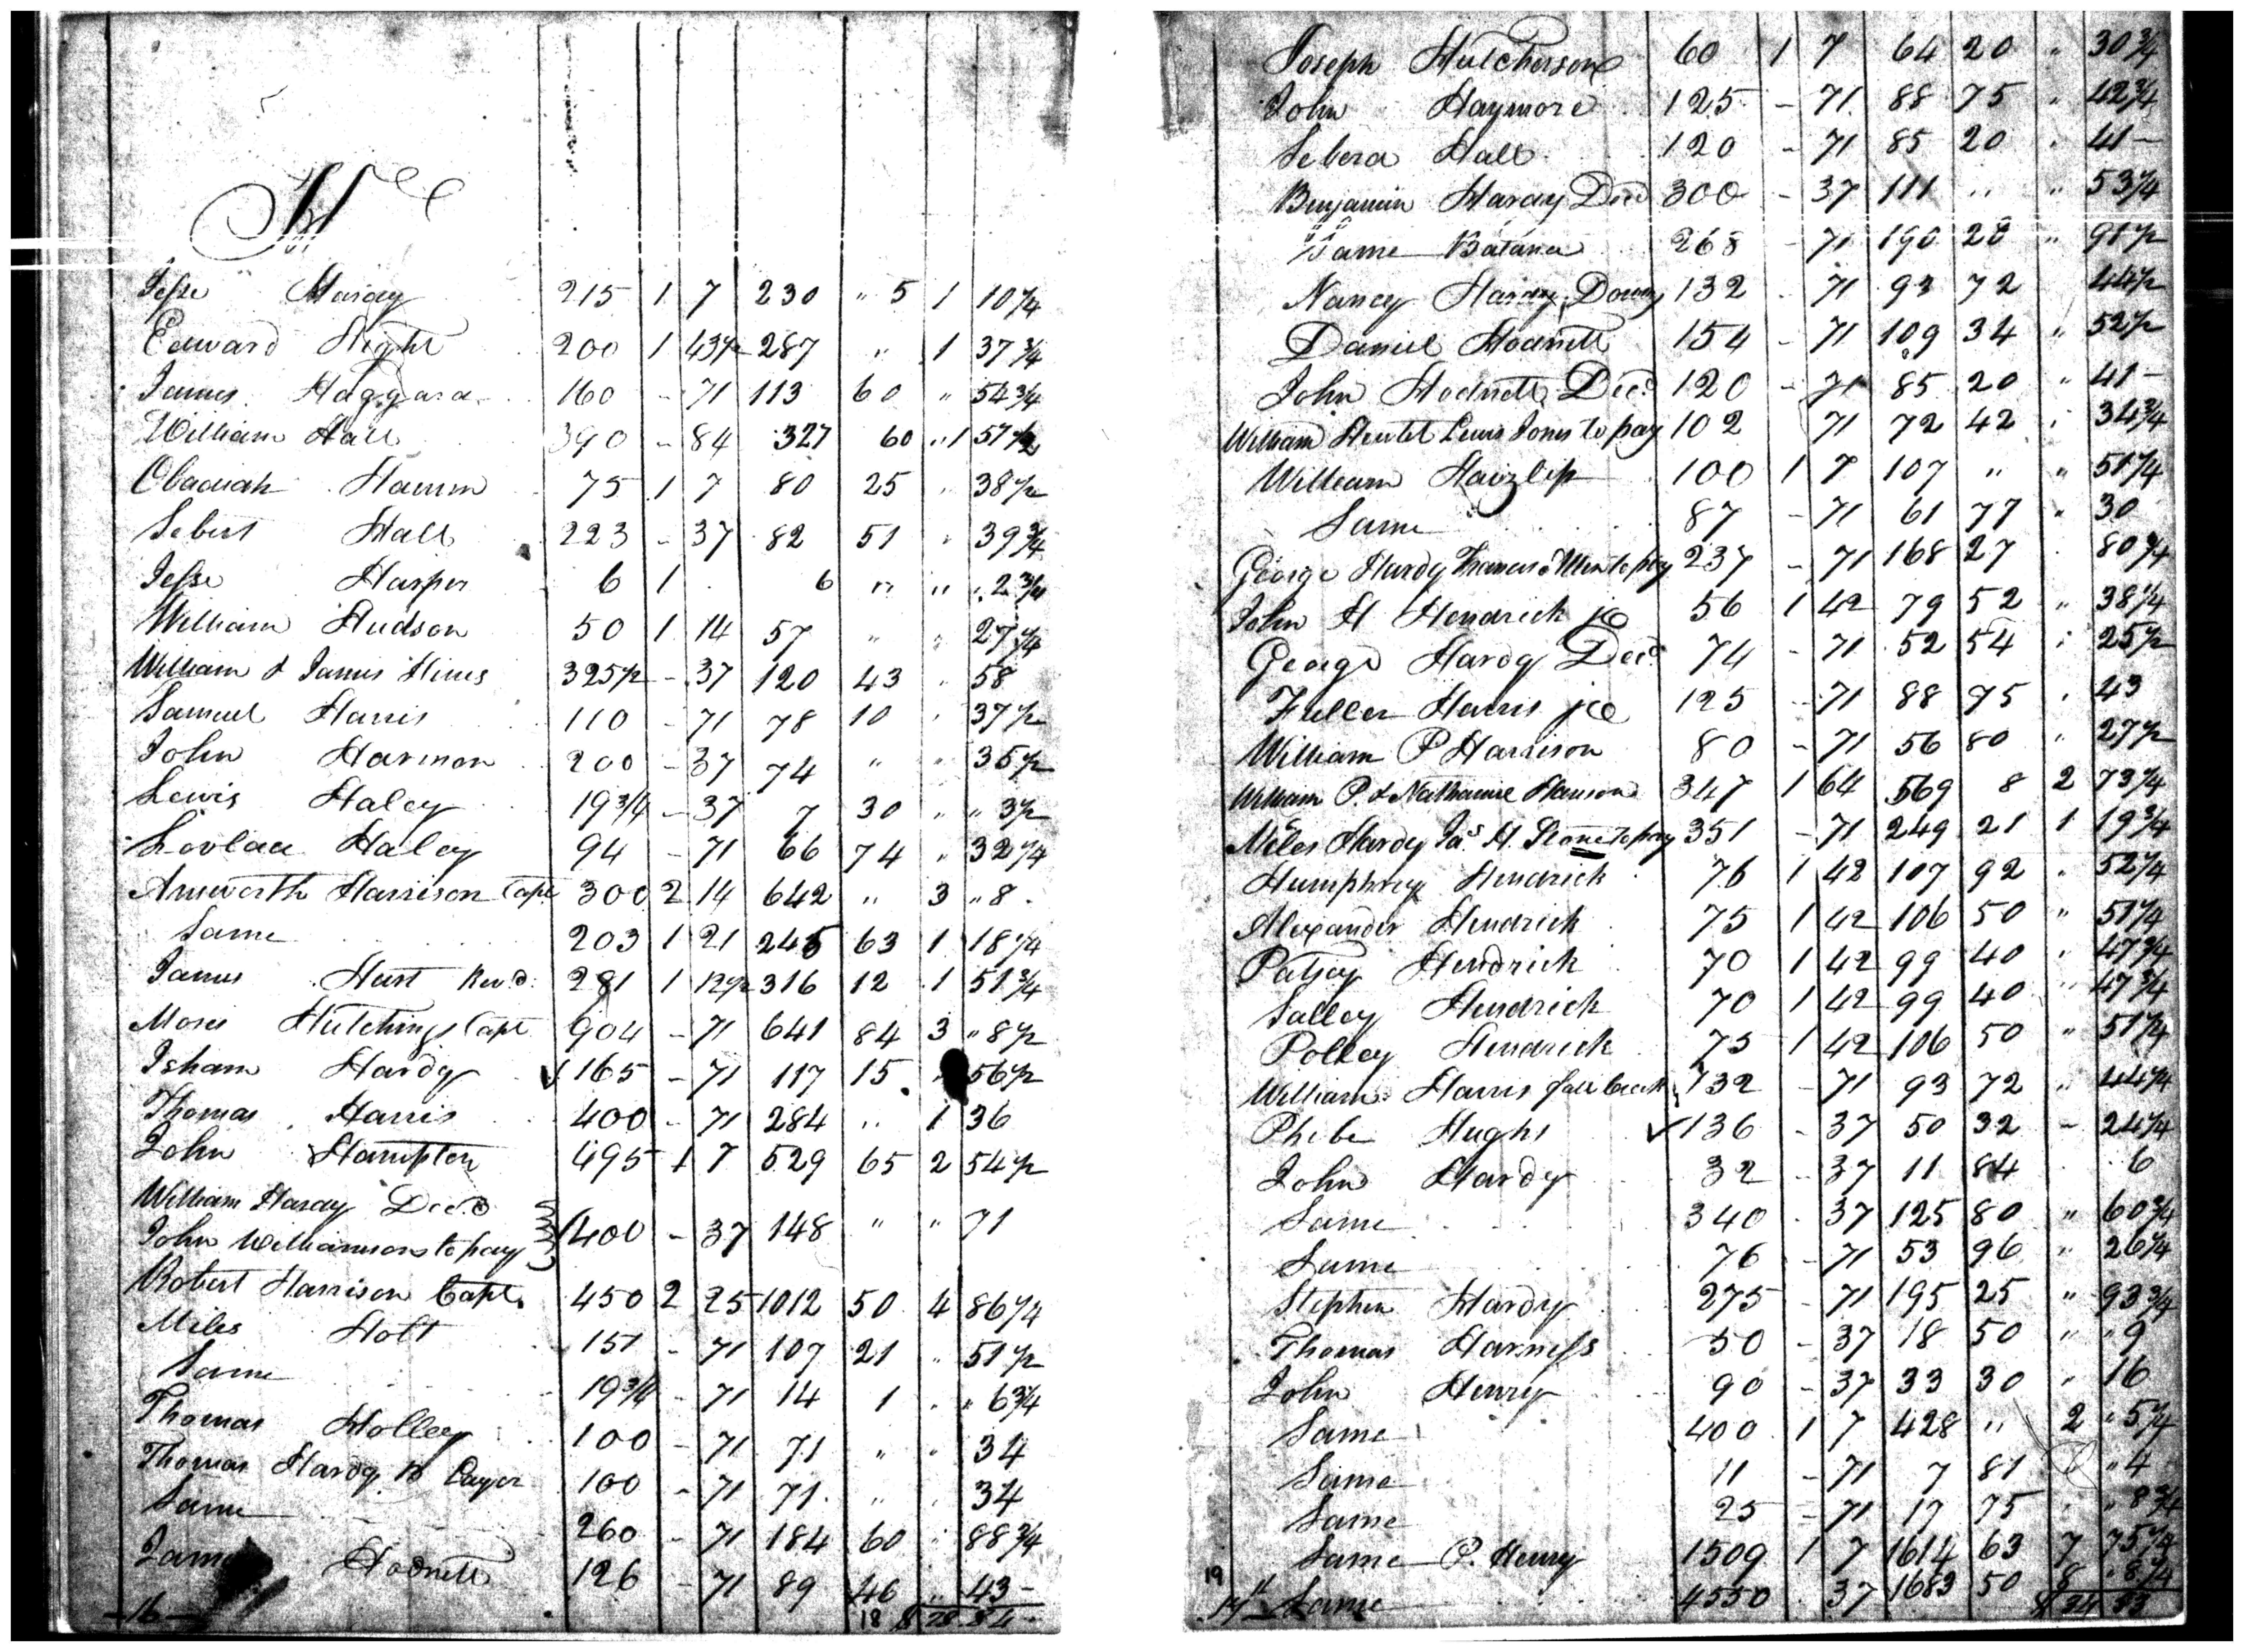 H
Jesse Hardy 215 1 7 230 " 5 1 10 1/4
Edward Hight 200 1 43 1/2 287 " 1 37 3/4
James Haggard 160 - 71 113 60 " 54 3/4
William Hall 390 - 84 327 60 " 1 57 1/2
Obadiah Hamm 75 1 7 80 25 " 38 1/2
Sebert Hall 223 - 37 82 51 " 39 3/4
Jesse Harper 6 1 6 " " " 2 3/4
William Hudson 50 1 14 57 " " 27 1/4
William & James Hines 325 1/2 - 37 120 43 " 58
Samuel Harris 110 - 71 78 10 " 37 1/2
John Harmon 200 - 37 74 " " 35 1/2
Lewis Haley 19 3/4 - 37 7 30 " " 3 1/2
Lovlace Haley 94 - 71 66 74 " 32 1/4
Ainsworth Harrison Capt 300 2 14 642 " 3 " 8
Same 203 1 21 245 63 1 18 1/4
James Hart Revd. 281 1 12 1/2 316 12 1 51 3/4
Moses Hutchings Capt 904 - 71 641 84 3 " 8 1/2
Isham Hardy ✓ 165 - 71 117 15 " 56 1/2
Thomas Harris 400 - 71 284 " 1 36
John Hampton 495 1 7 529 65 2 54 1/2
William Hardy Decd
John Williamson to pay 400 - 37 148 " " 71
Robert Harrison Capt. 450 2 25 1012 50 4 86 1/4
Miles Holt 151 - 71 107 21 " 51 1/2
Same 19 3/4 - 71 14 1 " " 6 3/4
Thomas Holley 100 - 71 71 " " 34
Thomas Hardy B 100 - 71 71 " " 34
Same 260 - 71 184 60 " 88 3/4
James Hodnett 126 - 71 89 46 " 43 -
-16- 18 $ 28.84
Joseph Hutcherson 60 1 7 64 20 " 30 3/4
John Haymore 125 - 71 88 75 " 42 3/4
Sebera Hall 120 - 71 85 20 " 41 -
Benjamin Hardy Decd 300 - 37 111 " " 53 1/4
Same Batana 268 - 71 190 28 " 91 1/2
Nancy Hardy, Dowry 132 71 93 72 44 1/2
Daniel Hodnett 154 - 71 109 34 " 52 1/2
John Hodnett, Decd. 120 - 71 85 20 " 41 -
William Hewlet Lewis Jones to pay 102 71 72 42 " 34 3/4
William Haizlip 100 1 7 107 " " 51 1/4
Same 87 - 71 61 77 " 30
George Hardy Thomas to pay 237 - 71 168 27 80 3/4
John H Hendrick jr 56 1 42 79 52 " 38 1/4
George Hardy Decd. 74 - 71 52 54 " 25 1/2
Fuller Harris jr 125 - 71 88 75 " 43
William P Harrison 80 - 71 56 80 " 27 1/2
William P. & Nathaniel Hanson 347 1 64 569 8 2 73 1/4
Miles Hardy Jas. H. Stone to pay 351 - 71 249 21 1 19 3/4
Humphrey Hendrick 76 1 42 107 92 " 52 1/4
Alexander Hendrick 75 1 42 106 50 " 51 1/4
Patsey Hendrick 70 1 42 99 40 " 47 3/4
Salley Hendrick 70 1 42 99 40 " 47 3/4
Polley Hendrick 75 1 42 106 50 " 51 1/4
William Harris fall Creek 132 - 71 93 72 " 44 3/4
Phibe Hughs ✓ 136 - 37 50 32 - 24 1/4
John Hardy 32 - 37 11 84 6
Same 340 37 125 80 " 60 3/4
Same 76 - 71 53 96 " 26 1/4
Stephen Hardy 275 - 71 195 25 " 93 3/4
Thomas Harness 50 - 37 18 50 " " 9
John Henry 90 - 37 33 30 " 16
Same 400 1 7 428 " 2 " 5 1/4
Same 11 - 71 7 81 " 4
Same 25 - 71 17 75 " " 8 3/4
Same P. Henry 1509 1 7 1614 63 7 75 1/4
19 Same 4550 37 1683 50 8 " 8 1/4
$ 34 53